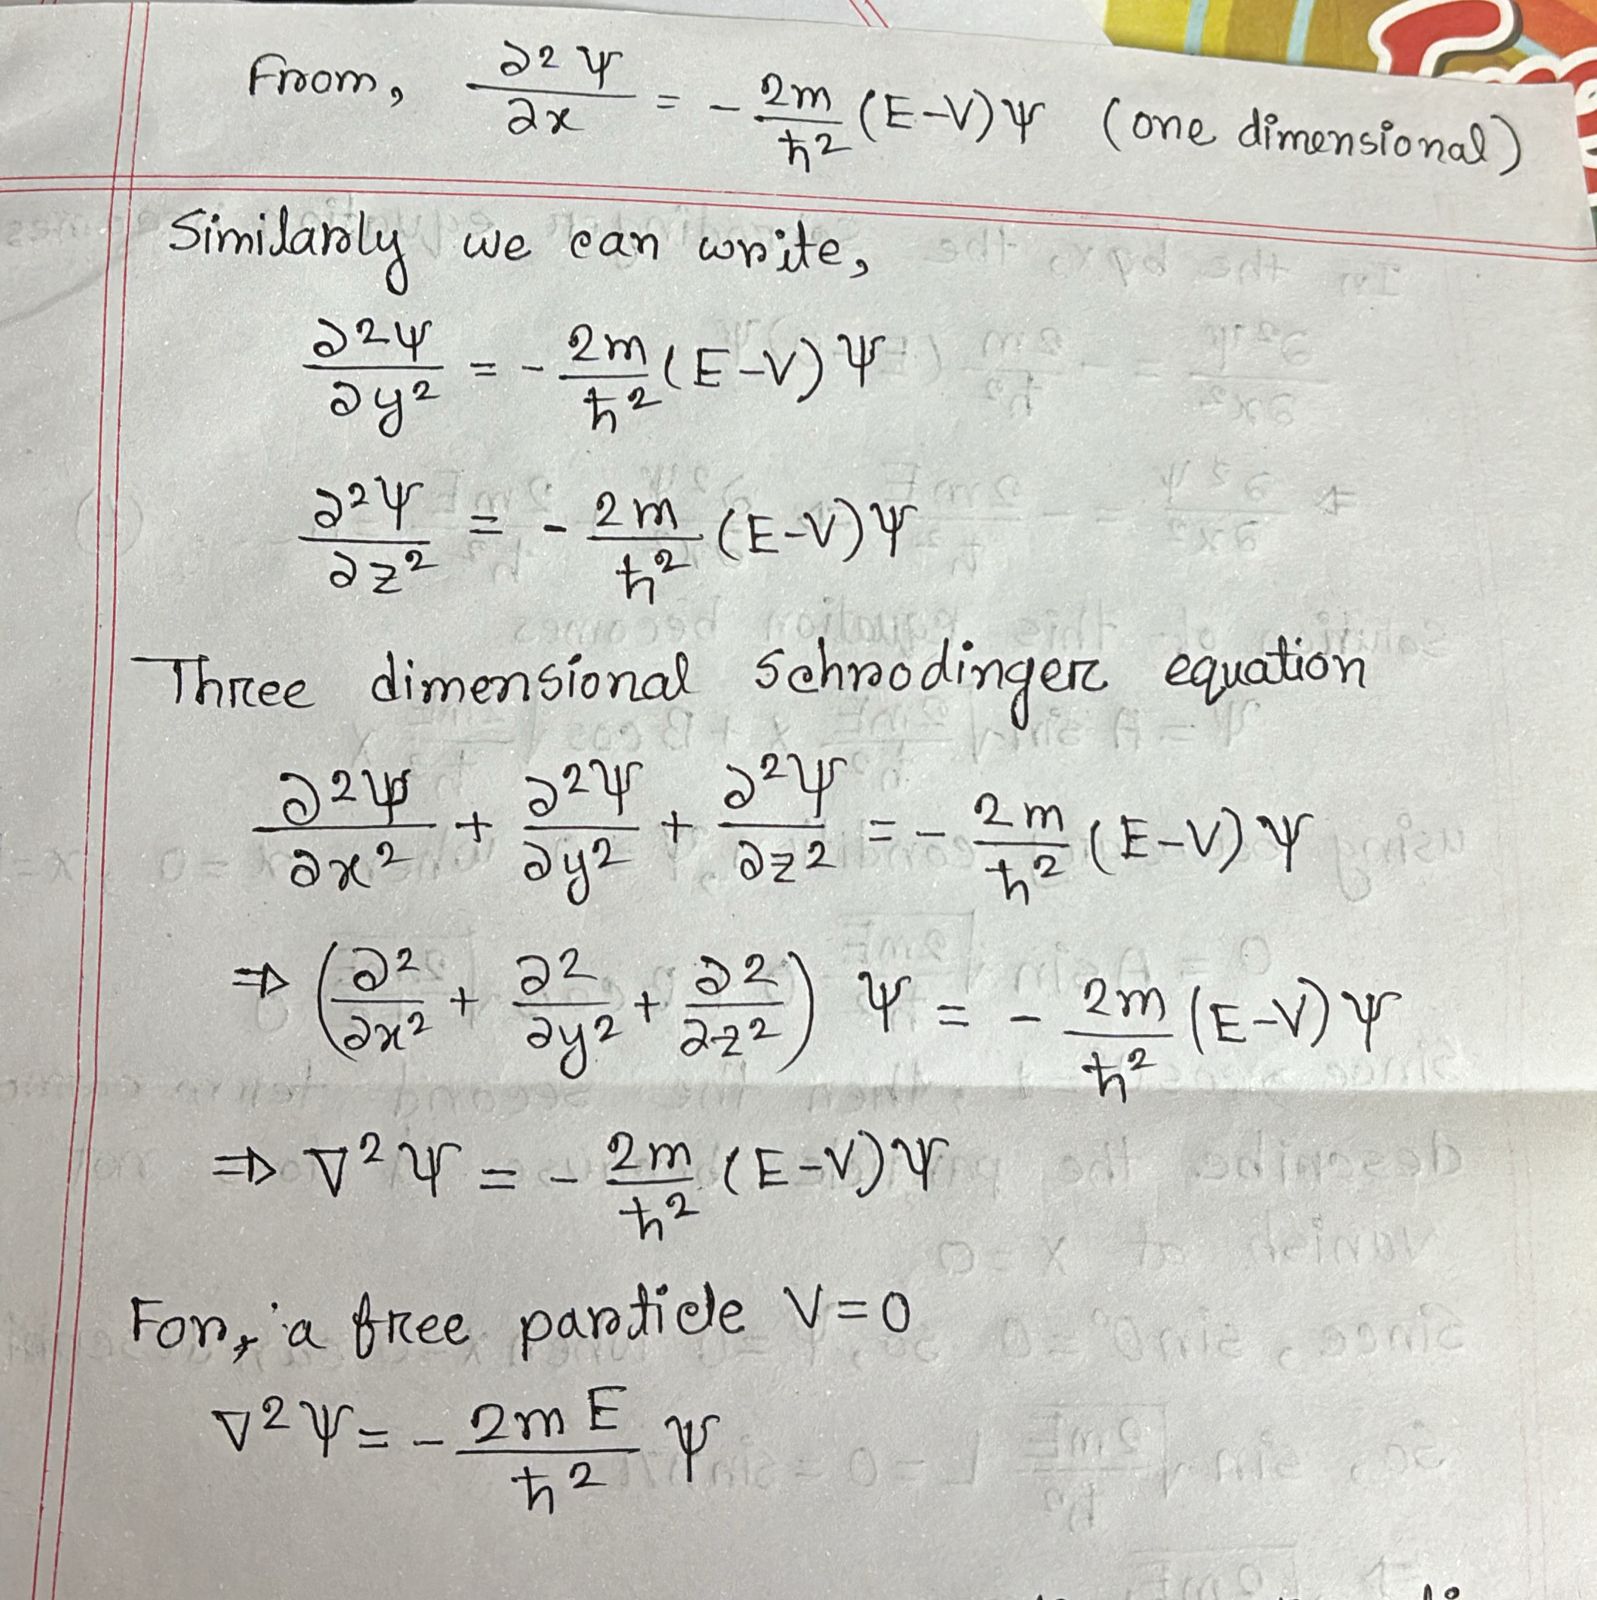 From, ∂²Ψ/∂x = - 2m/ħ² (E-V)Ψ (one dimensional)
Similarly we can write,
∂²Ψ/∂y² = - 2m/ħ² (E-V)Ψ
∂²Ψ/∂z² = - 2m/ħ² (E-V)Ψ
Three dimensional Schrodinger equation
∂²Ψ/∂x² + ∂²Ψ/∂y² + ∂²Ψ/∂z² = - 2m/ħ² (E-V)Ψ
⇒ (∂²/∂x² + ∂²/∂y² + ∂²/∂z²) Ψ = - 2m/ħ² (E-V)Ψ
⇒ ∇²Ψ = - 2m/ħ² (E-V)Ψ
For, a free particle V=0
∇²Ψ = - 2mE/ħ² Ψ